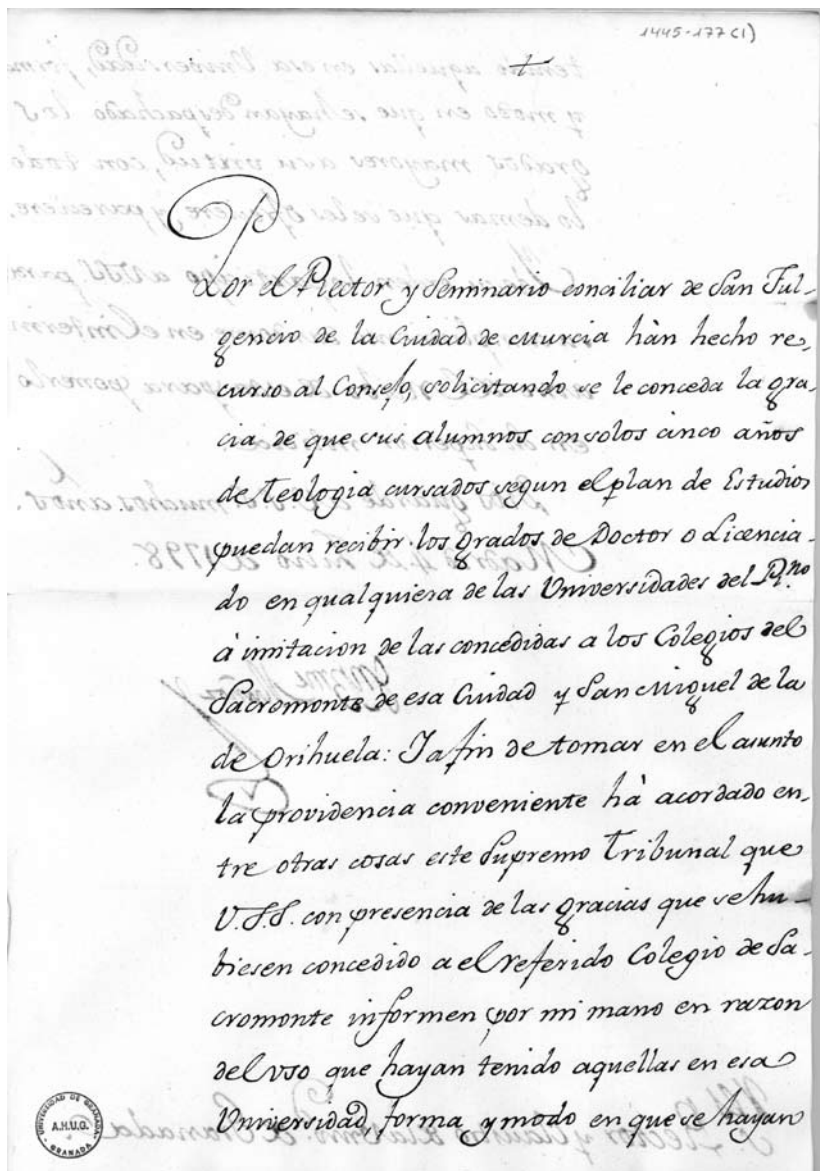 1445-177 (1)
+
Por el Rector y Seminario conciliar de San Ful-
gencio de la Ciudad de Murcia hàn hecho re-
curso al Consejo, solicitando se le conceda la gra-
cia de que sus alumnos con solos cinco años
de Teologia cursados segun el plan de Estudios
puedan recibir los grados de Doctor o Licencia-
do en qualquiera de las Universidades del R.no
à imitacion de las concedidas a los Colegios del
Sacromonte de esa Ciudad y San Miguel de la
de Orihuela: Y a fin de tomar en el asunto
la providencia conveniente hà acordado en-
tre otras cosas este Supremo Tribunal que
V.SS. con presencia de las gracias que se hu-
biesen concedido a el referido Colegio de Sa-
cromonte informen por mi mano en razon
del uso que hayan tenido aquellas en esa
Universidad, forma y modo en que se hayan
UNIVERSIDAD DE GRANADA
A.H.U.G.
GRANADA